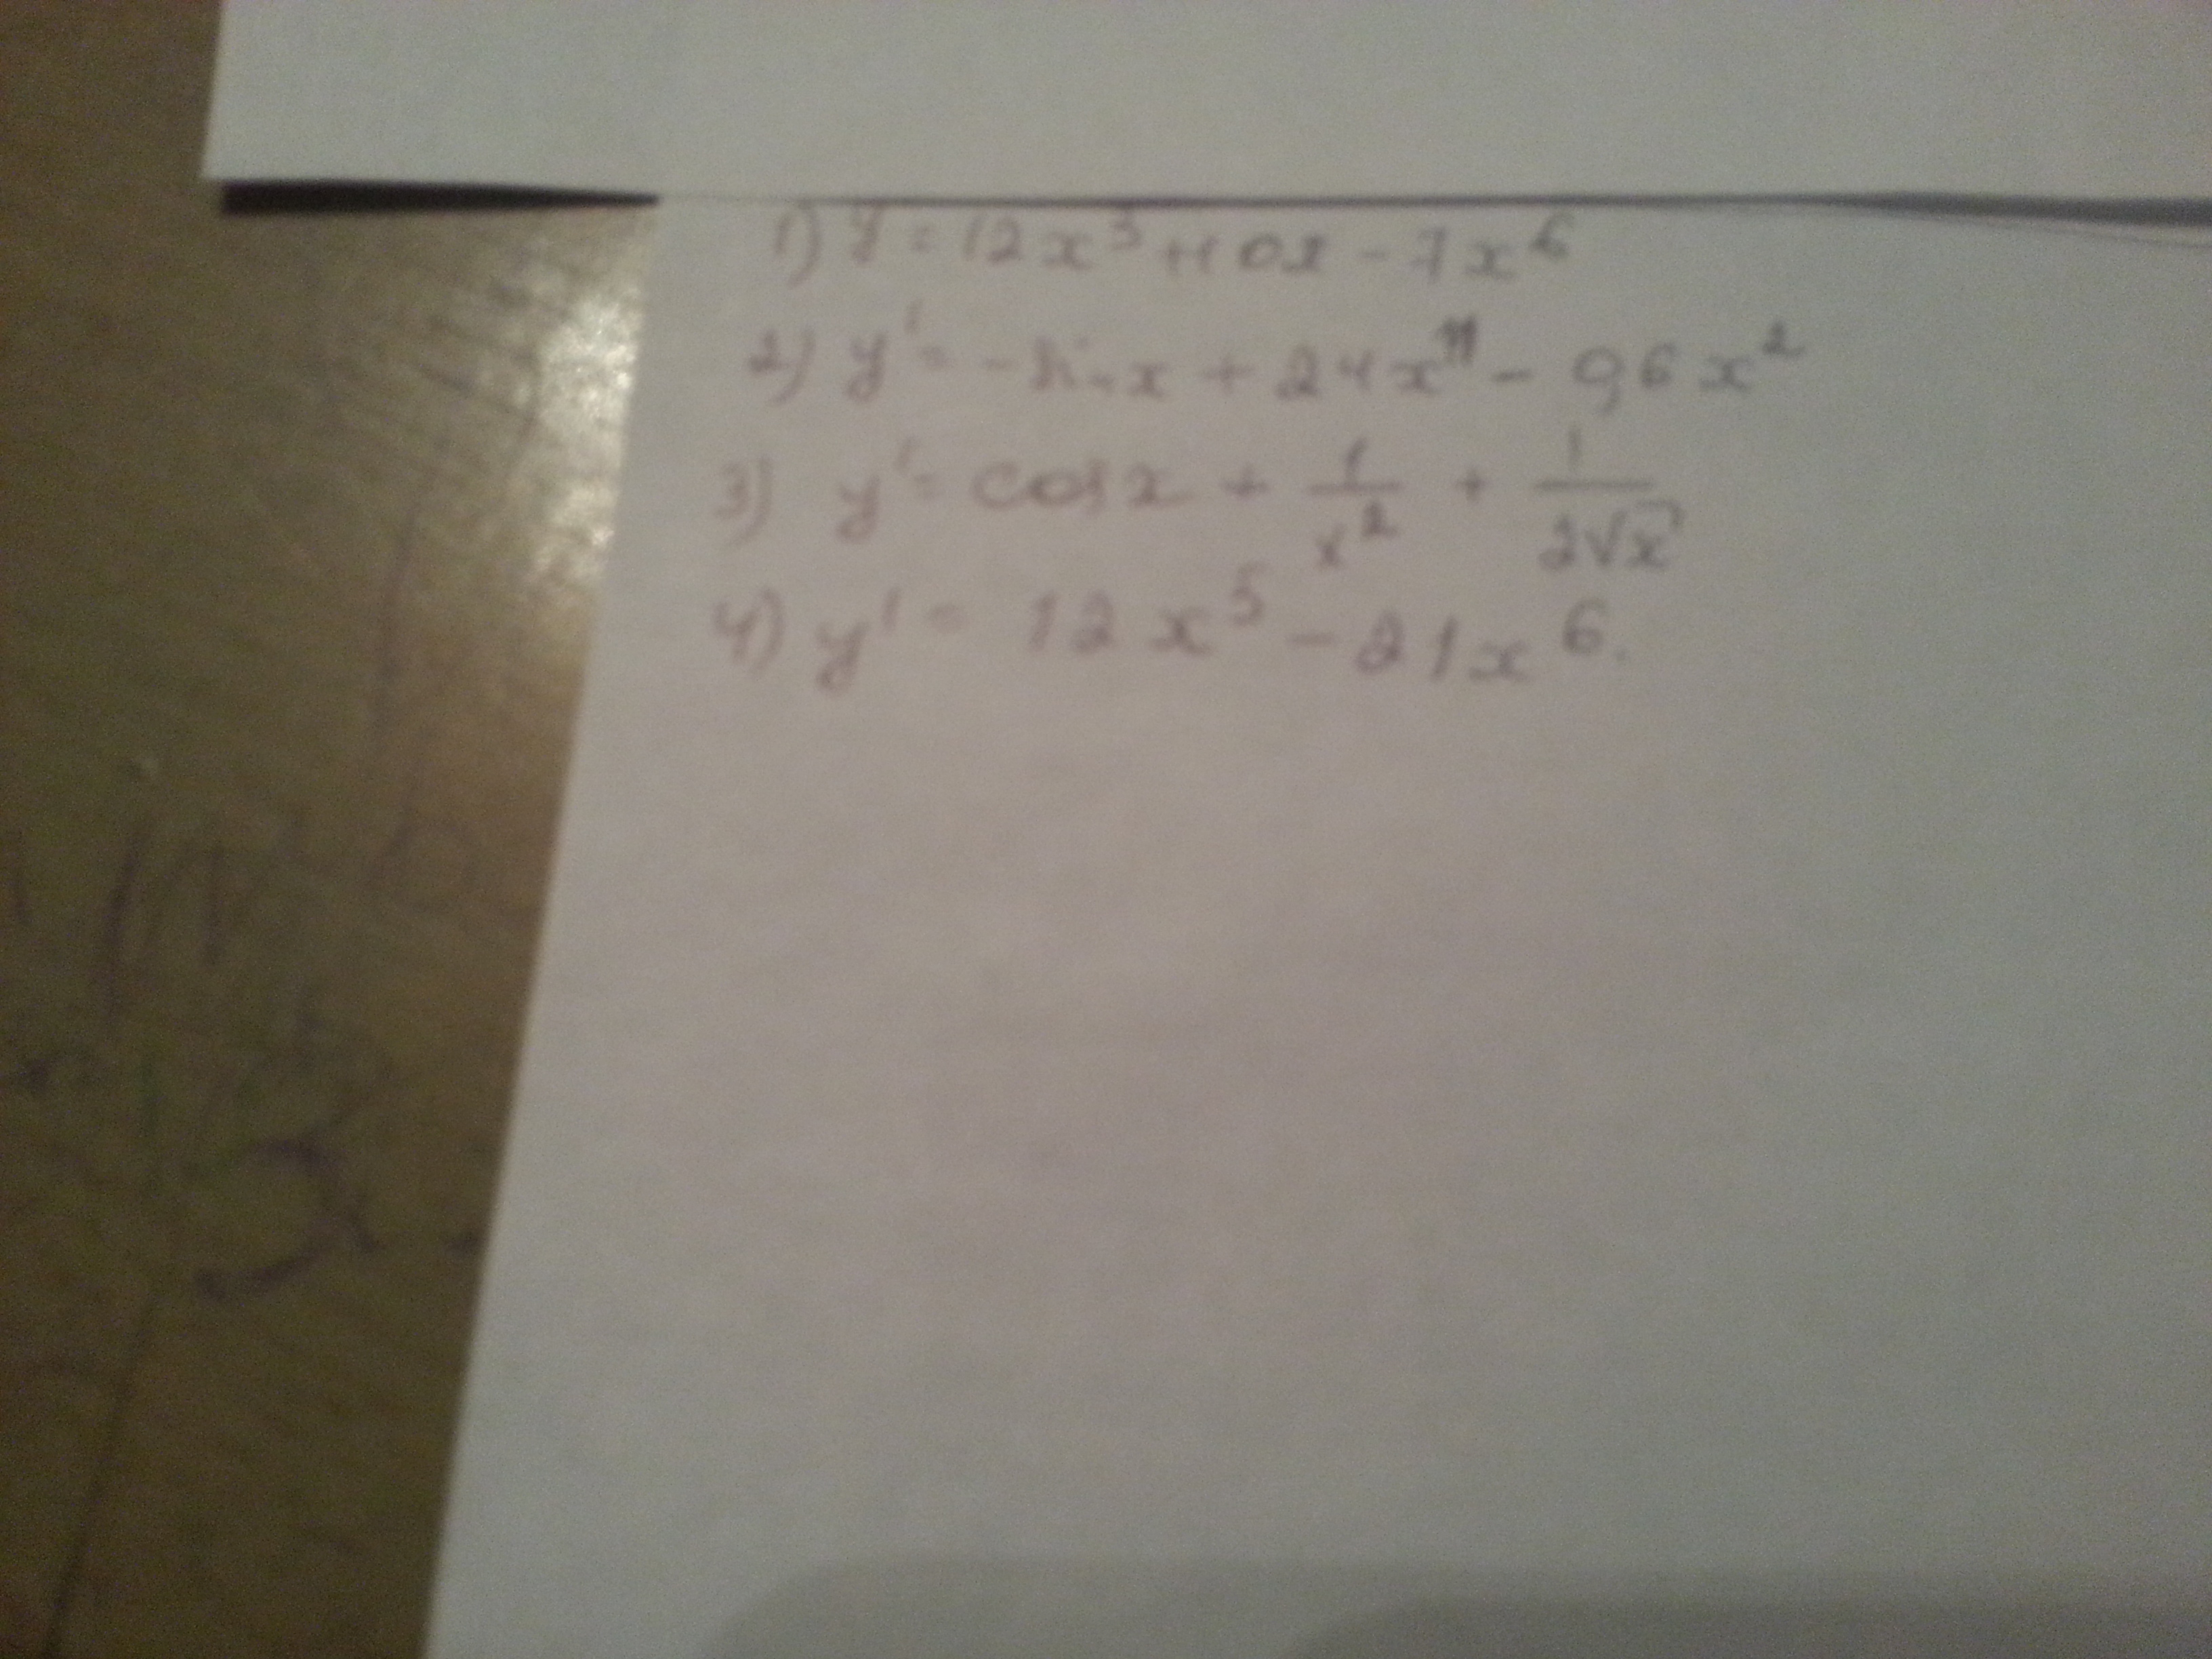 1) y = 12x³ + 10x - 7x⁶
2) y' = -sin x + 24x¹¹ - 96x²
3) y' = cos x + 1/x² + 1/(2√x)
4) y' = 12x⁵ - 21x⁶.